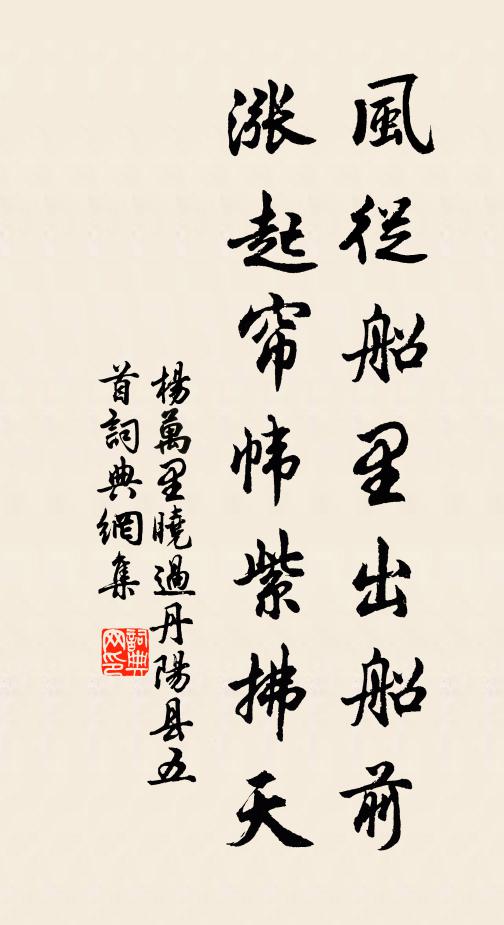 風從船里出船前
漲起帘幃紫拂天
楊萬里曉過丹陽县五
首詞典網集
詞典
网印